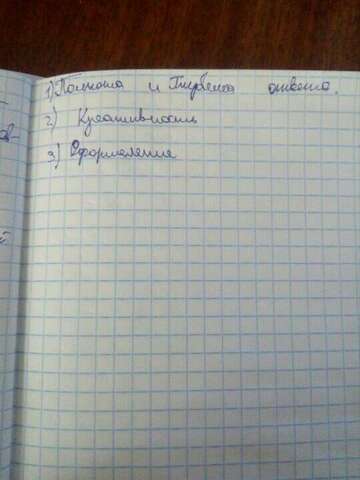 1) Полнота и Глубина ответа.
2) Креативность
3) Оформление